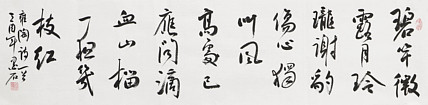 碧竿微
露月玲
瓏謝豹
傷心獨
叫風
高處已
應聞滴
血山榴
一夜幾
枝紅
雍陶詩一首